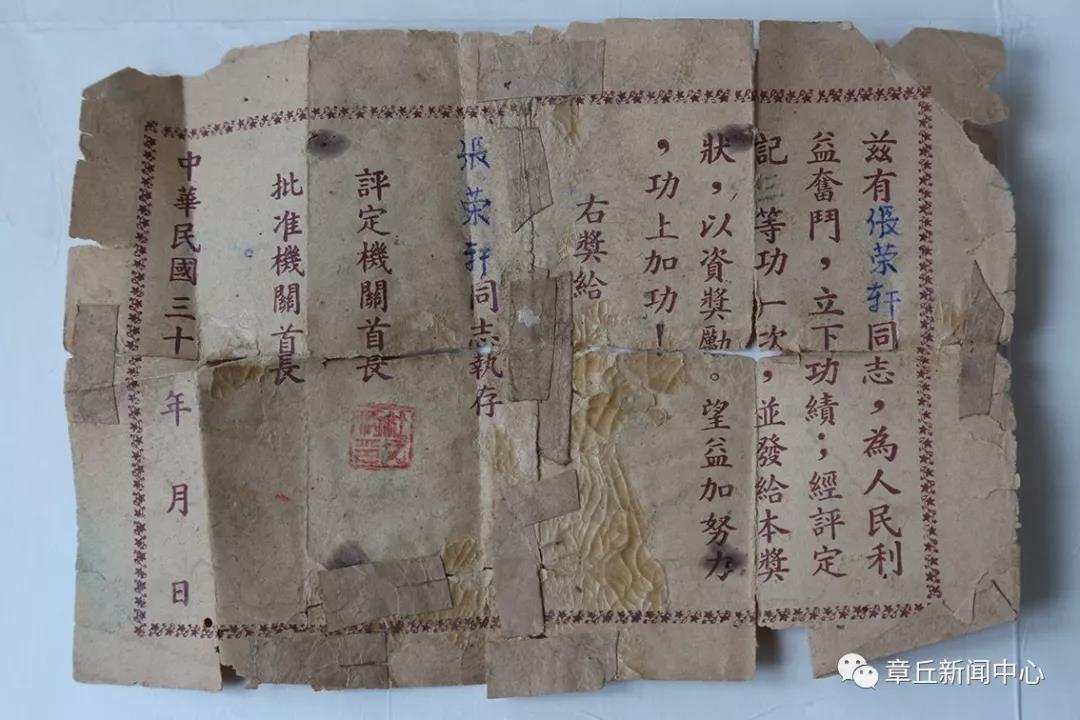 兹有張荣轩同志，為人民利
益奮鬥，立下功績；經評定
記三等功一次，並發給本獎
狀，以資獎勵。望益加努力
，功上加功！
右獎給
張荣轩同志執存
評定機關首長
批准機關首長
中華民國三十 年 月 日
章丘新闻中心